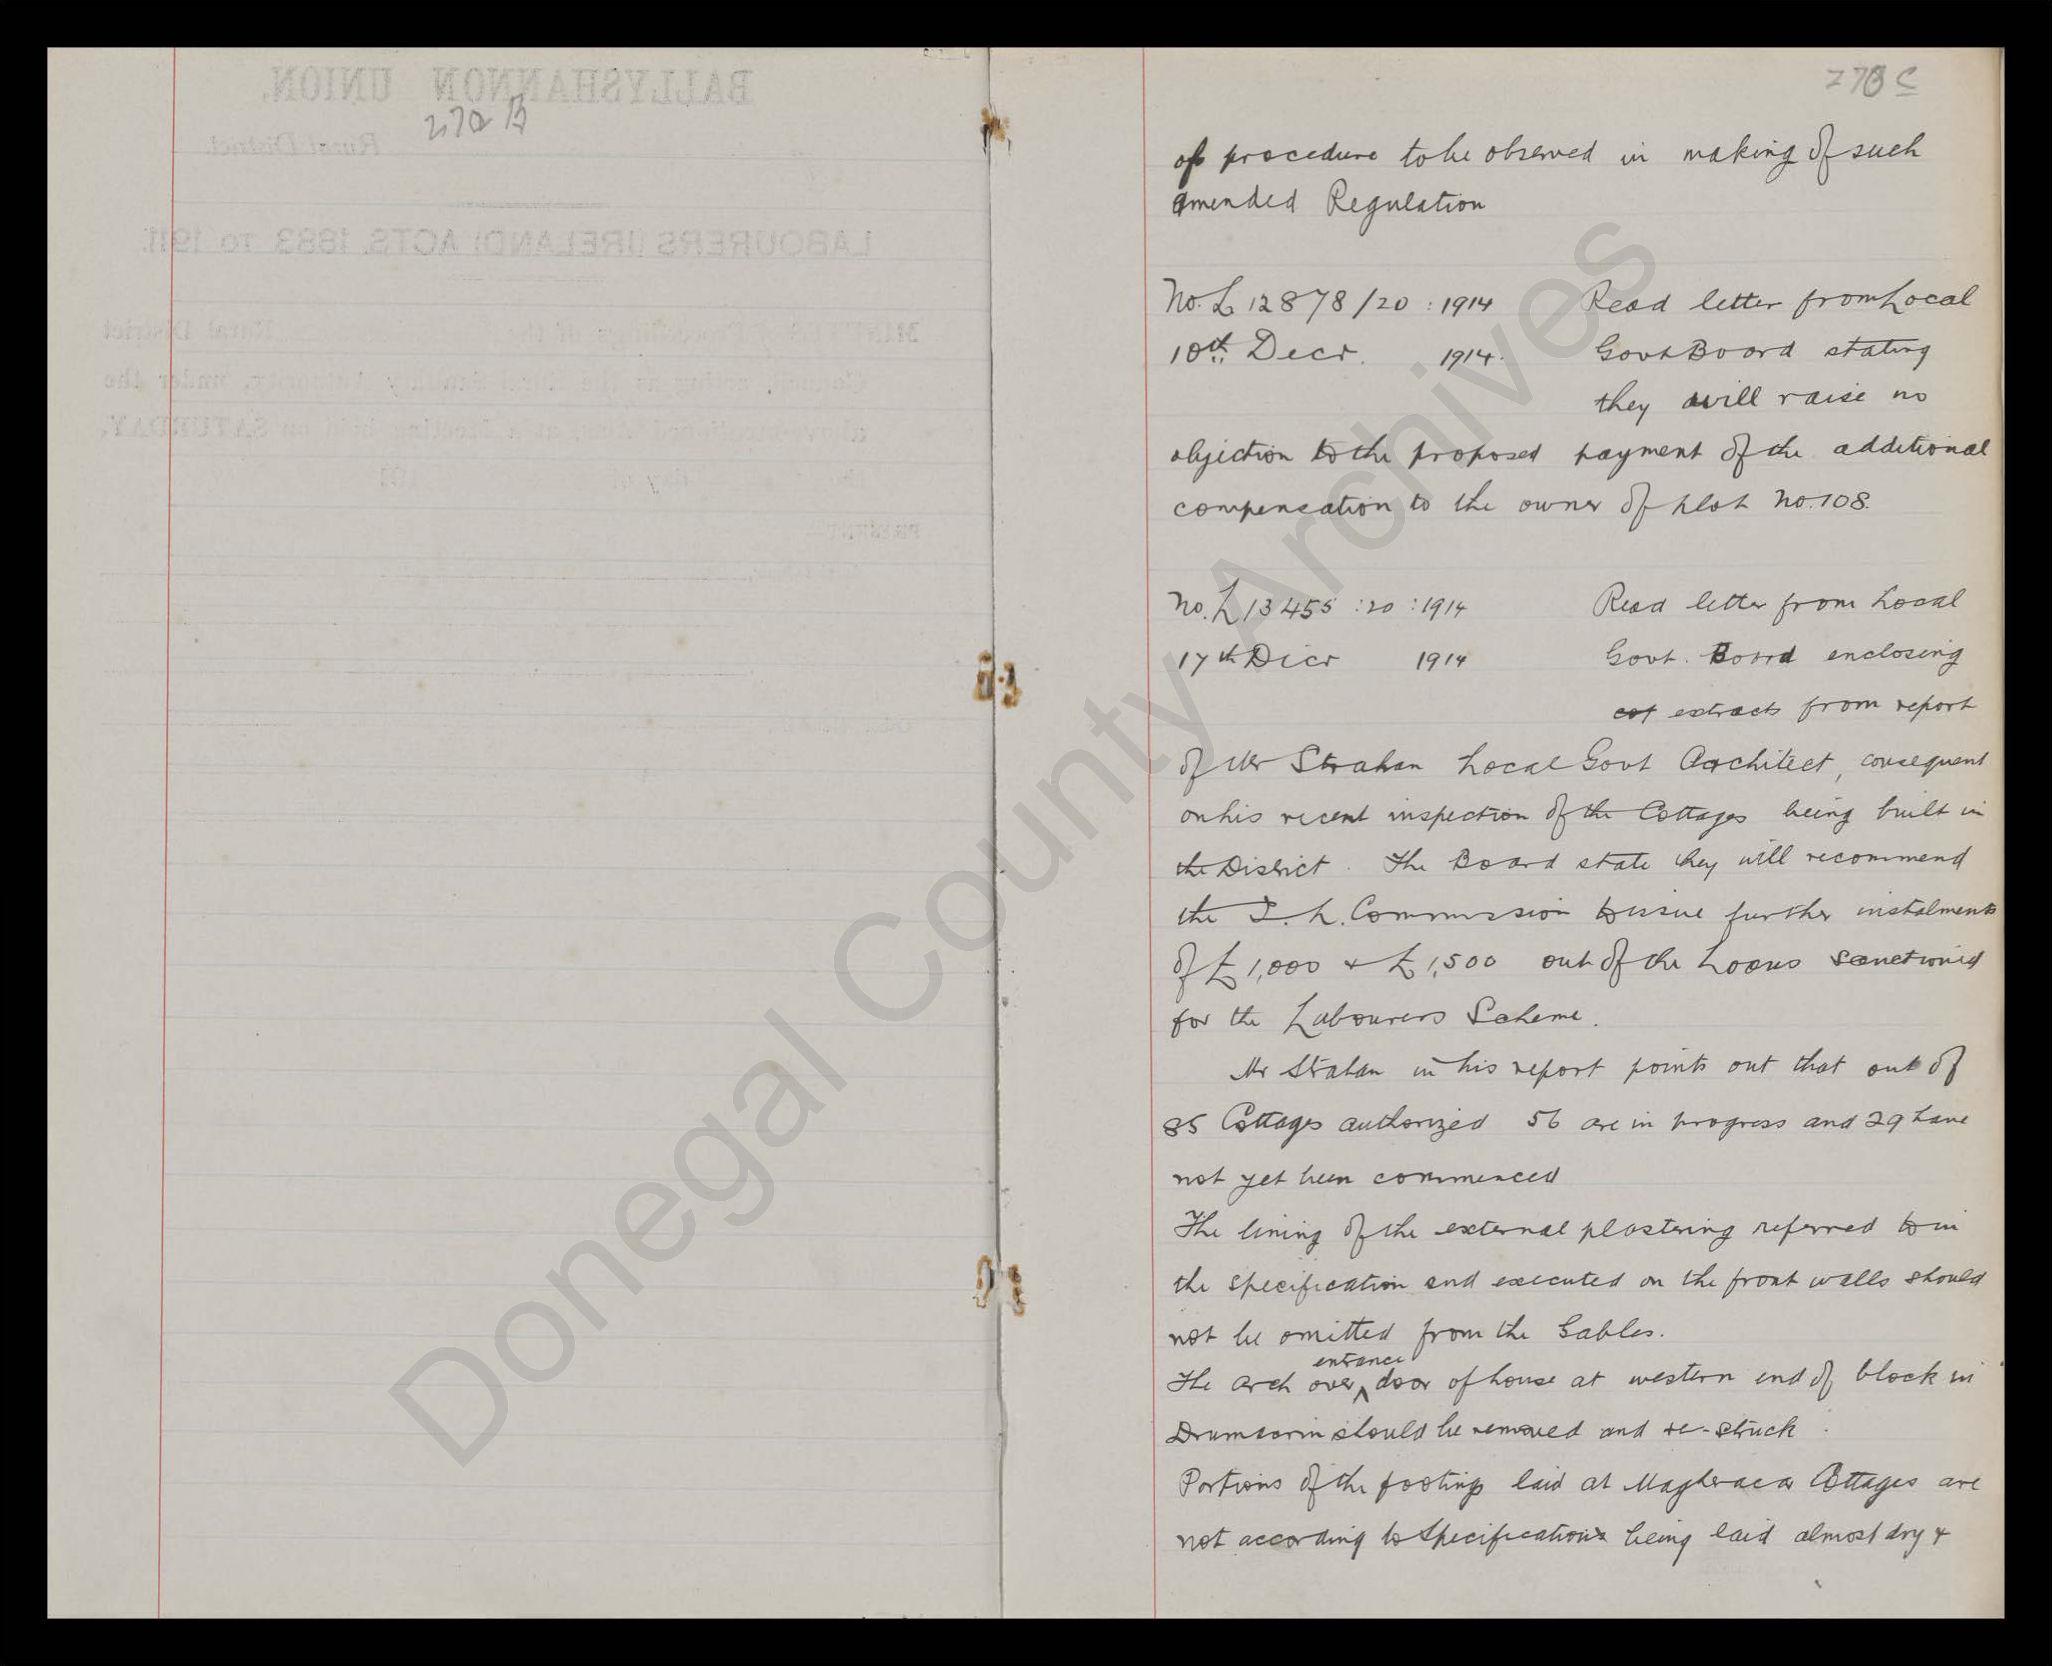 270 B
270 C
of procedure to be observed in making of such
amended Regulation
No. L 12878/20 : 1914 Read letter from Local
10th. Decr. 1914. Govt Board stating
they will raise no
objection to the proposed payment of the additional
compensation to the owner of plot No. 108.
No. L 13455 : 20 : 1914 Read letter from Local
17th Decr 1914 Govt. Board enclosing
extracts from report
of Mr Strahan Local Govt Architect, consequent
on his recent inspection of the Cottages being built in
the District. The Board state they will recommend
the I. L. Commission to issue further instalments
of £1,000 + £1,500 out of the Loans sanctioned
for the Labourers Scheme.
Mr Strahan in his report points out that out of
85 Cottages authorized 56 are in progress and 29 have
not yet been commenced
The lining of the external plastering referred to in
the specification and executed on the front walls should
not be omitted from the Gables.
The arch over entrance door of house at western end of block in
should be removed and re-struck.
Portions of the footings laid at Magheracar Cottages are
not according to Specifications being laid almost dry +
Donegal County Archives